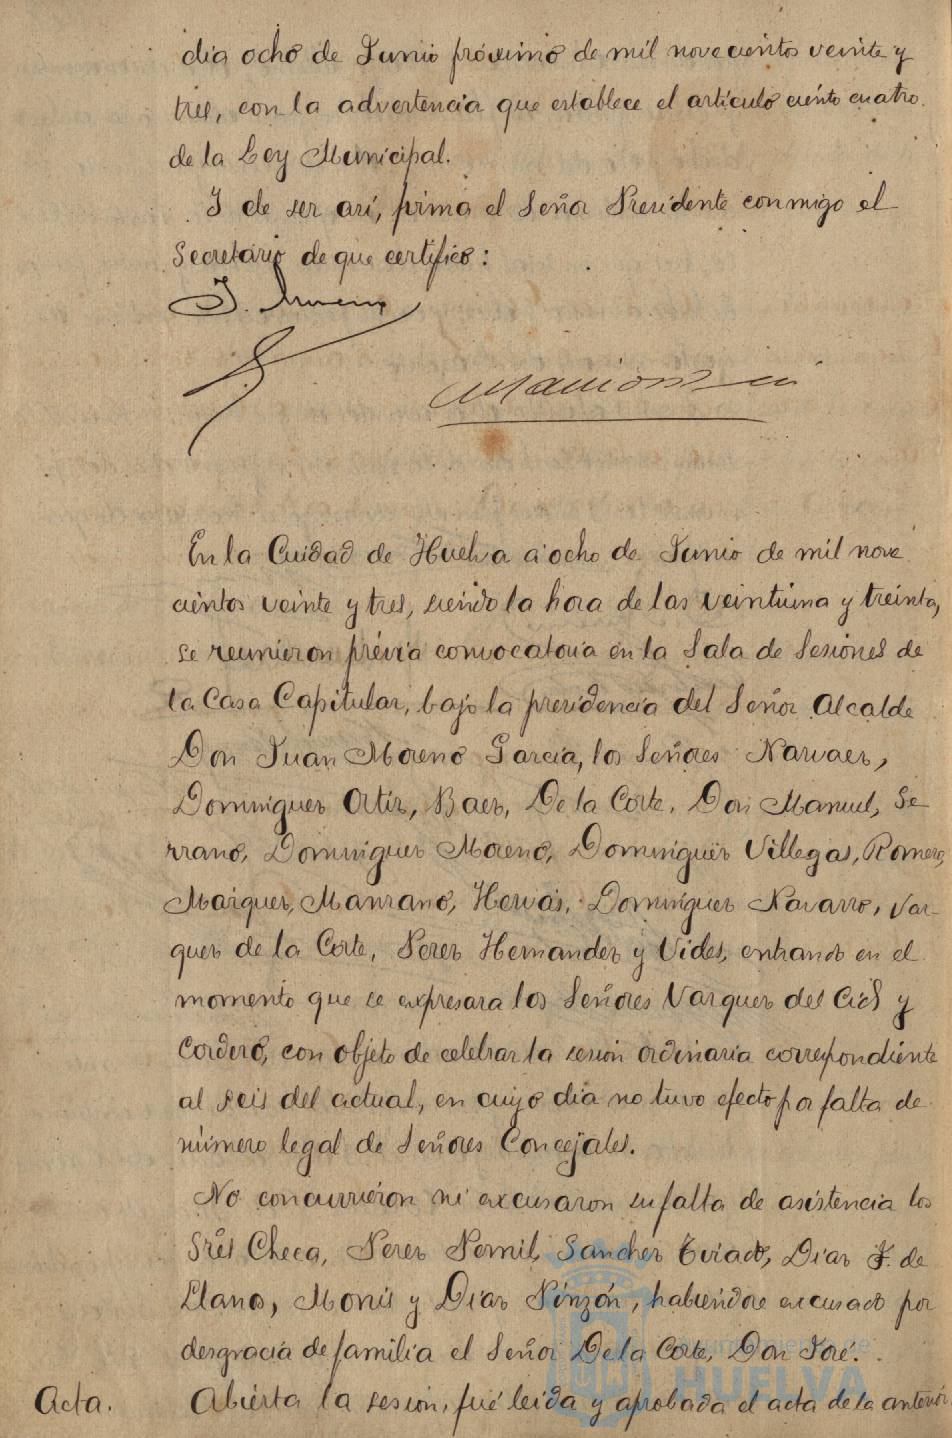 dia ocho de Junio próximo de mil novecientos veinte y
tres, con la advertencia que establece el artículo ciento cuatro
de la Ley Municipal.
Y de ser así, firma el Señor Presidente conmigo el
Secretario de que certifico:
J. Moreno
En la Cuidad de Huelva a ocho de Junio de mil nove
cientos veinte y tres, siendo la hora de las veintiuna y treinta,
se reunieron prévia convocatoria en la Sala de Sesiones de
la Casa Capitular, bajo la presidencia del Señor Alcalde
Don Juan Moreno García, los Señores Narvaez,
Dominguez Ortiz, Baez, De la Corte, Don Manuel, Se
rrano, Dominguez Moreno, Dominguez Villegas, Romero,
Marquez, Manzano, Hervás, Dominguez Navarro, Vaz-
quez de la Corte, Perez Hernandez y Vides, entrando en el
momento que se expresara los Señores Vazquez del Cid y
Cordero, con objeto de celebrar la sesion ordinaria correspondiente
al seis del actual, en cuyo dia no tuvo efecto por falta de
número legal de Señores Concejales.
No concurrieron ni excusaron su falta de asistencia los
Srés Checa, Perez Pernil, Sanchez Tirado, Diaz F. de
Llano, Monis y Diaz Pinzón, habiendose excusado por
desgracia de familia el Señor De la Corte, Don José.
Acta. Abierta la sesion, fué leida y aprobada el acta de la anterior.
Ayuntamiento de
HUELVA